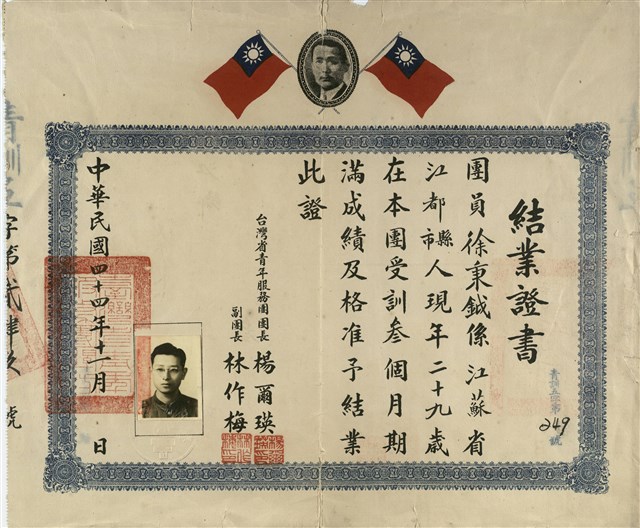 結業證書
團員徐秉鉞係江蘇省
江都縣市人現年二十九歲
在本團受訓叁個月期
滿成績及格准予結業
此證
台灣省青年服務團團長楊爾瑛
副團長林作梅
中華民國四十四年十一月 日
字第貳肆玖號
249
號